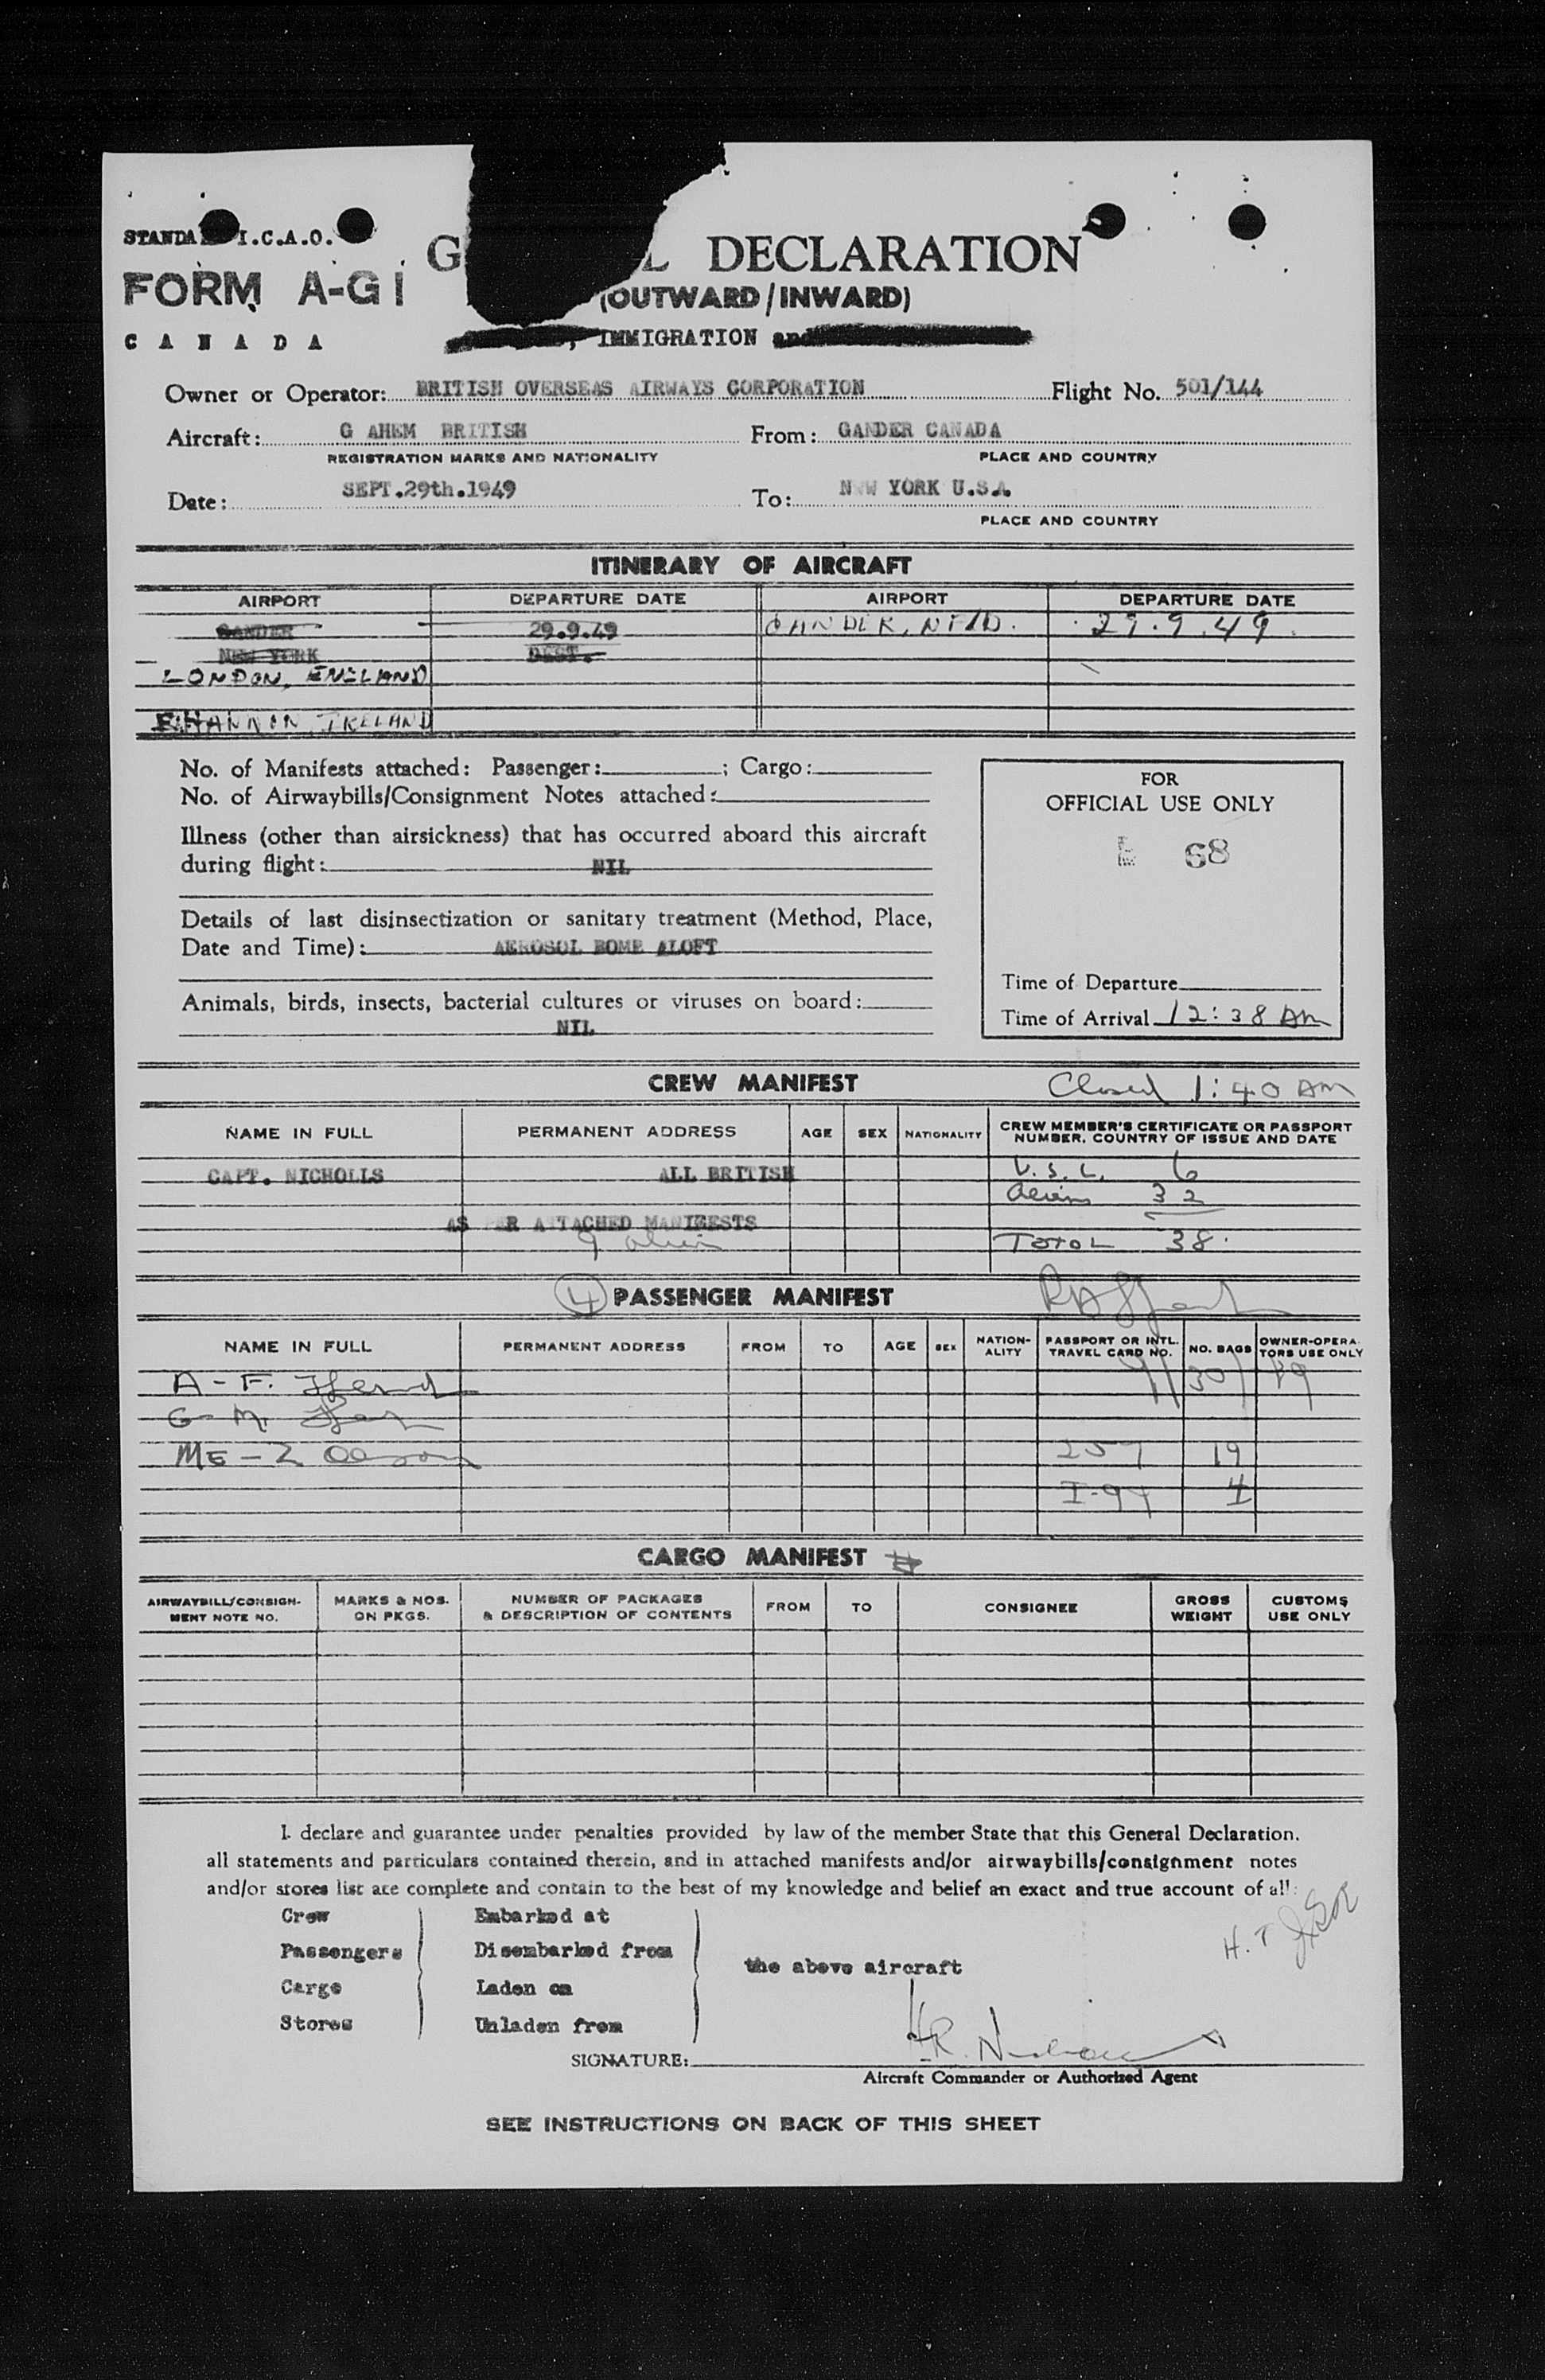 I.C.A.O.
FORM A-G1
DECLARATION
(OUTWARD/INWARD)
CANADA
IMMIGRATION and
Owner or Operator: BRITISH OVERSEAS AIRWAYS CORPORATION Flight No. 501/144
Aircraft: G AHEM BRITISH From: GANDER CANADA
REGISTRATION MARKS AND NATIONALITY PLACE AND COUNTRY
Date: SEPT.29th.1949 To: NEW YORK U.S.A.
PLACE AND COUNTRY
ITINERARY OF AIRCRAFT
AIRPORT DEPARTURE DATE AIRPORT DEPARTURE DATE
GANDER 29.9.49 GANDER, NFLD. 29.9.49.
NEW YORK DEST.
LONDON, ENGLAND
SHANNON IRELAND
No. of Manifests attached: Passenger: ; Cargo:
No. of Airwaybills/Consignment Notes attached:
Illness (other than airsickness) that has occurred aboard this aircraft
during flight: NIL
Details of last disinsectization or sanitary treatment (Method, Place,
Date and Time): AEROSOL BOMB ALOFT
Animals, birds, insects, bacterial cultures or viruses on board:
NIL
FOR
OFFICIAL USE ONLY
68
Time of Departure
Time of Arrival 12:38 AM
CREW MANIFEST Closed 1:40 AM
NAME IN FULL PERMANENT ADDRESS AGE SEX NATIONALITY CREW MEMBER'S CERTIFICATE OR PASSPORT NUMBER, COUNTRY OF ISSUE AND DATE
CAPT. NICHOLLS ALL BRITISH U.S.C. 6
Aliens 32
AS PER ATTACHED MANIFESTS
9 aliens TOTAL 38.
4 PASSENGER MANIFEST
NAME IN FULL PERMANENT ADDRESS FROM TO AGE SEX NATION-ALITY PASSPORT OR INTL. TRAVEL CARD NO. NO. BAGS OWNER-OPERA-TORS USE ONLY
A-F. 9/30/49
G-M.
ME-Z 257 19
I-94 4
CARGO MANIFEST
AIRWAYBILL/CONSIGN-MENT NOTE NO. MARKS & NOS. ON PKGS. NUMBER OF PACKAGES & DESCRIPTION OF CONTENTS FROM TO CONSIGNEE GROSS WEIGHT CUSTOMS USE ONLY
I declare and guarantee under penalties provided by law of the member State that this General Declaration,
all statements and particulars contained therein, and in attached manifests and/or airwaybills/consignment notes
and/or stores list are complete and contain to the best of my knowledge and belief an exact and true account of all:
Crew Embarked at
Passengers Disembarked from
the above aircraft
Cargo Laden on
Stores Unladen from
SIGNATURE:
Aircraft Commander or Authorized Agent
SEE INSTRUCTIONS ON BACK OF THIS SHEET